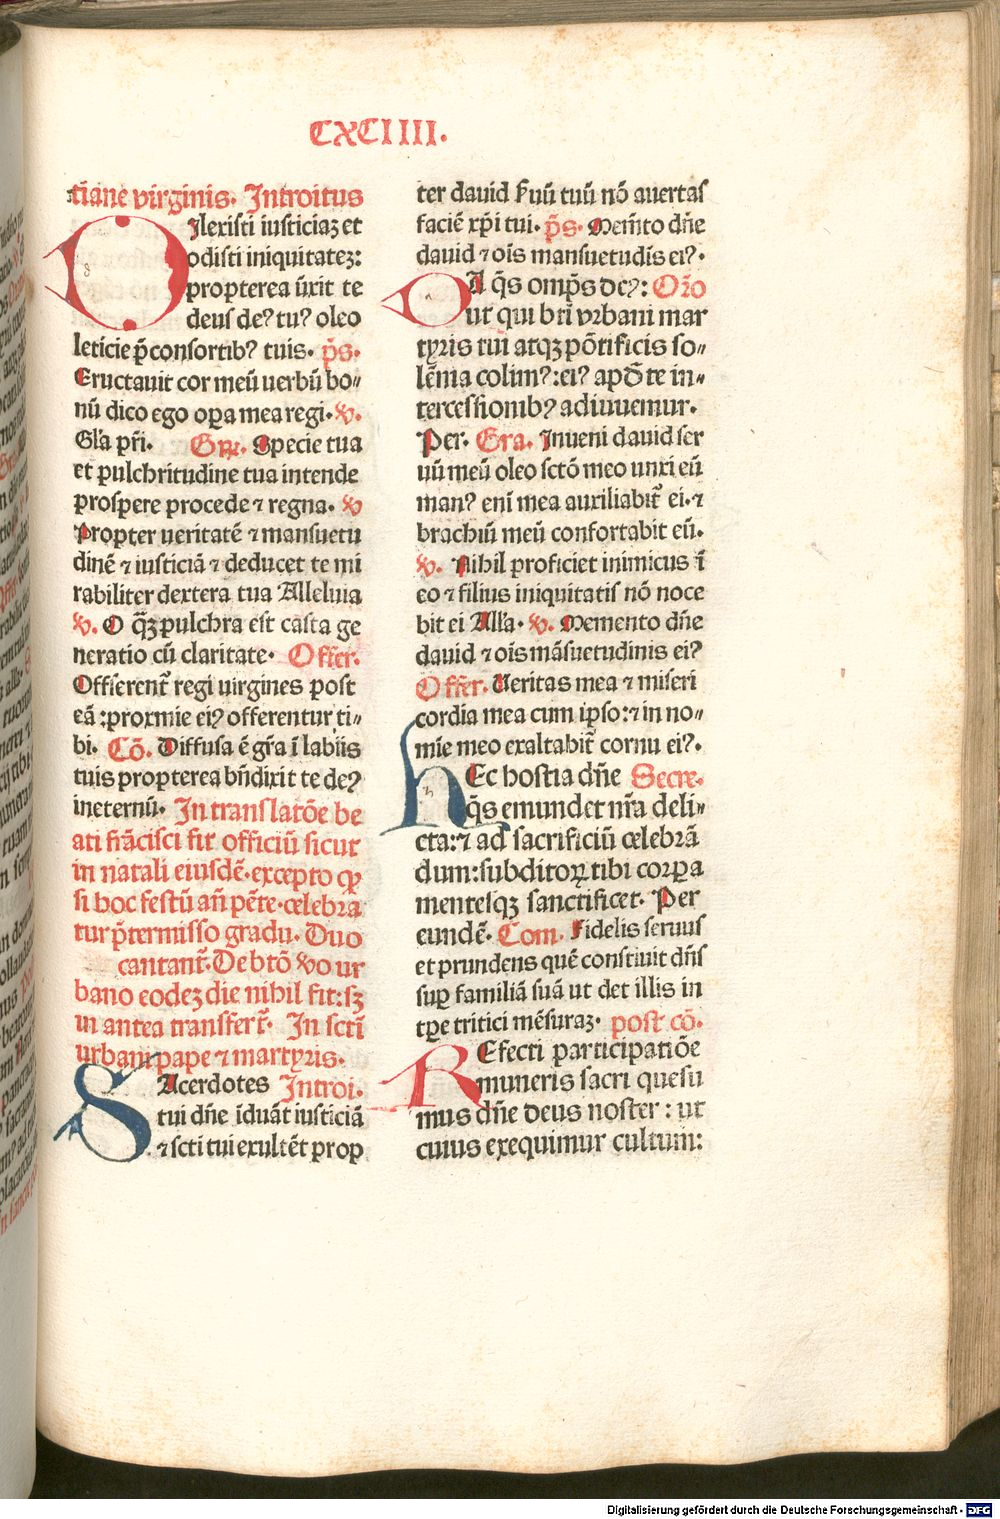 CXCIIII.
tiane virginis. Introitus
Dilexisti iusticiaꝫ et
odisti iniquitateꝫ:
propterea ūxit te
deus deꝰ tuꝰ oleo
leticie p̄consortibꝰ tuis. p̄s.
Eructauit cor meū uerbū bo〃
nū dico ego oꝑa mea regi. ꝟ.
Gl'a pr̄i. Gr̄. Specie tua
et pulchritudine tua intende
prospere procede ⁊ regna. ꝟ
Propter ueritatē ⁊ mansuetu
dinē ⁊ iusticiā ⁊ deducet te mi
rabiliter dextera tua Alleluia
ꝟ. O q̄ꝫ pulchra est casta ge
neratio cū claritate. Offer.
Offerent̄ regi uirgines post
eā : proxmie eiꝰ offerentur ti〃
bi. Cō. Diffusa ē gr̄a ī labiis
tuis propterea bn̄dixit te deꝰ
ineternū. In translatōe be
ati frācisci fit officiū sicut
in natali eiusdē. excepto ꝙ
si hoc festū añ pēte. celebra
tur p̄termisso gradu. Duo
cantant̄. De btō vo ur
bano eodeꝫ die nihil fit: sꝫ
in antea transfert̄. In scti
urbani pape ⁊ martyris.
SAcerdotes Introi.
tui dñe īduāt iusticiā
⁊ scti tui exultēt prop
ter dauid ſuū tuū nō auertas
faciē xp̄i tui. p̄s. Mem̄to dñe
dauid ⁊ oīs mansuetudīs eiꝰ.
DA q̄s omp̄s deꝰ: Or̄o
ut qui bti vrbani mar
tyris tui atqꝫ pōtificis so〃
lēnia colimꝰ: eiꝰ apd̄ te in〃
tercessionibꝰ adiuuemur.
Per. Gra. Inueni dauid ser
uū meū oleo sctō meo unxi eū
manꝰ eni mea auxiliabit̄ ei. ⁊
brachiū meū confortabit eū.
ꝟ. Nihil proficiet inimicus ī
eo ⁊ filius iniquitatis nō noce
bit ei All'a. ꝟ. Memento dñe
dauid ⁊ oīs māsuetudinis eiꝰ
Offer. Ueritas mea ⁊ miseri
cordia mea cum ipso: ⁊ in no〃
mīe meo exaltabit̄ cornu eiꝰ.
hEc hostia dñe Secre.
q̄s emundet nr̄a deli〃
cta: ⁊ ad sacrificiū celebrā
dum: subditoꝝ tibi corꝑa
mentesqꝫ sanctificet. Per
eundē. Com. Fidelis seruus
et prundens quē constiuit dñs
suꝑ familiā suā ut det illis in
tꝑe tritici mēsuraꝫ. post cō.
REfecti participatiōe
muneris sacri quesu
mus dñe deus noster : ut
cuius exequimur cultum:
Digitalisierung gefördert durch die Deutsche Forschungsgemeinschaft - DFG